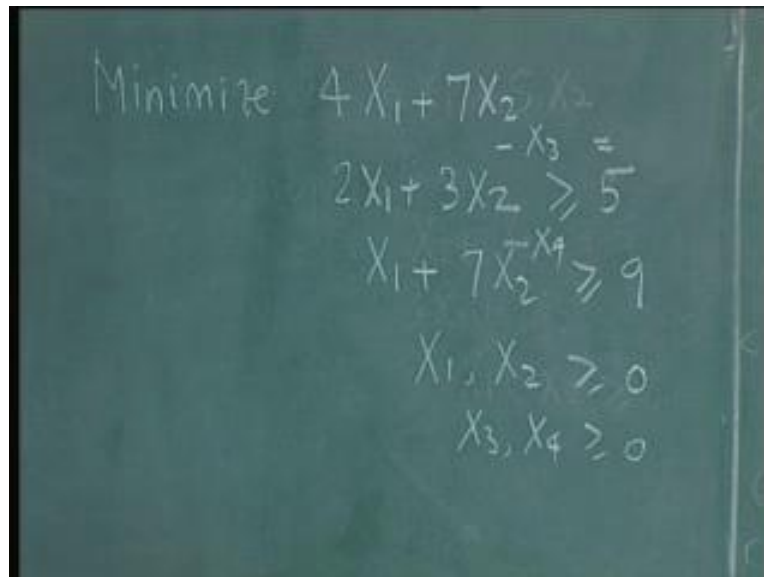 Minimize 4X₁ + 7X₂
- X₃ =
2X₁ + 3X₂ ≥ 5
X₁ + 7X₂ - X₄ ≥ 9
X₁, X₂ ≥ 0
X₃, X₄ ≥ 0